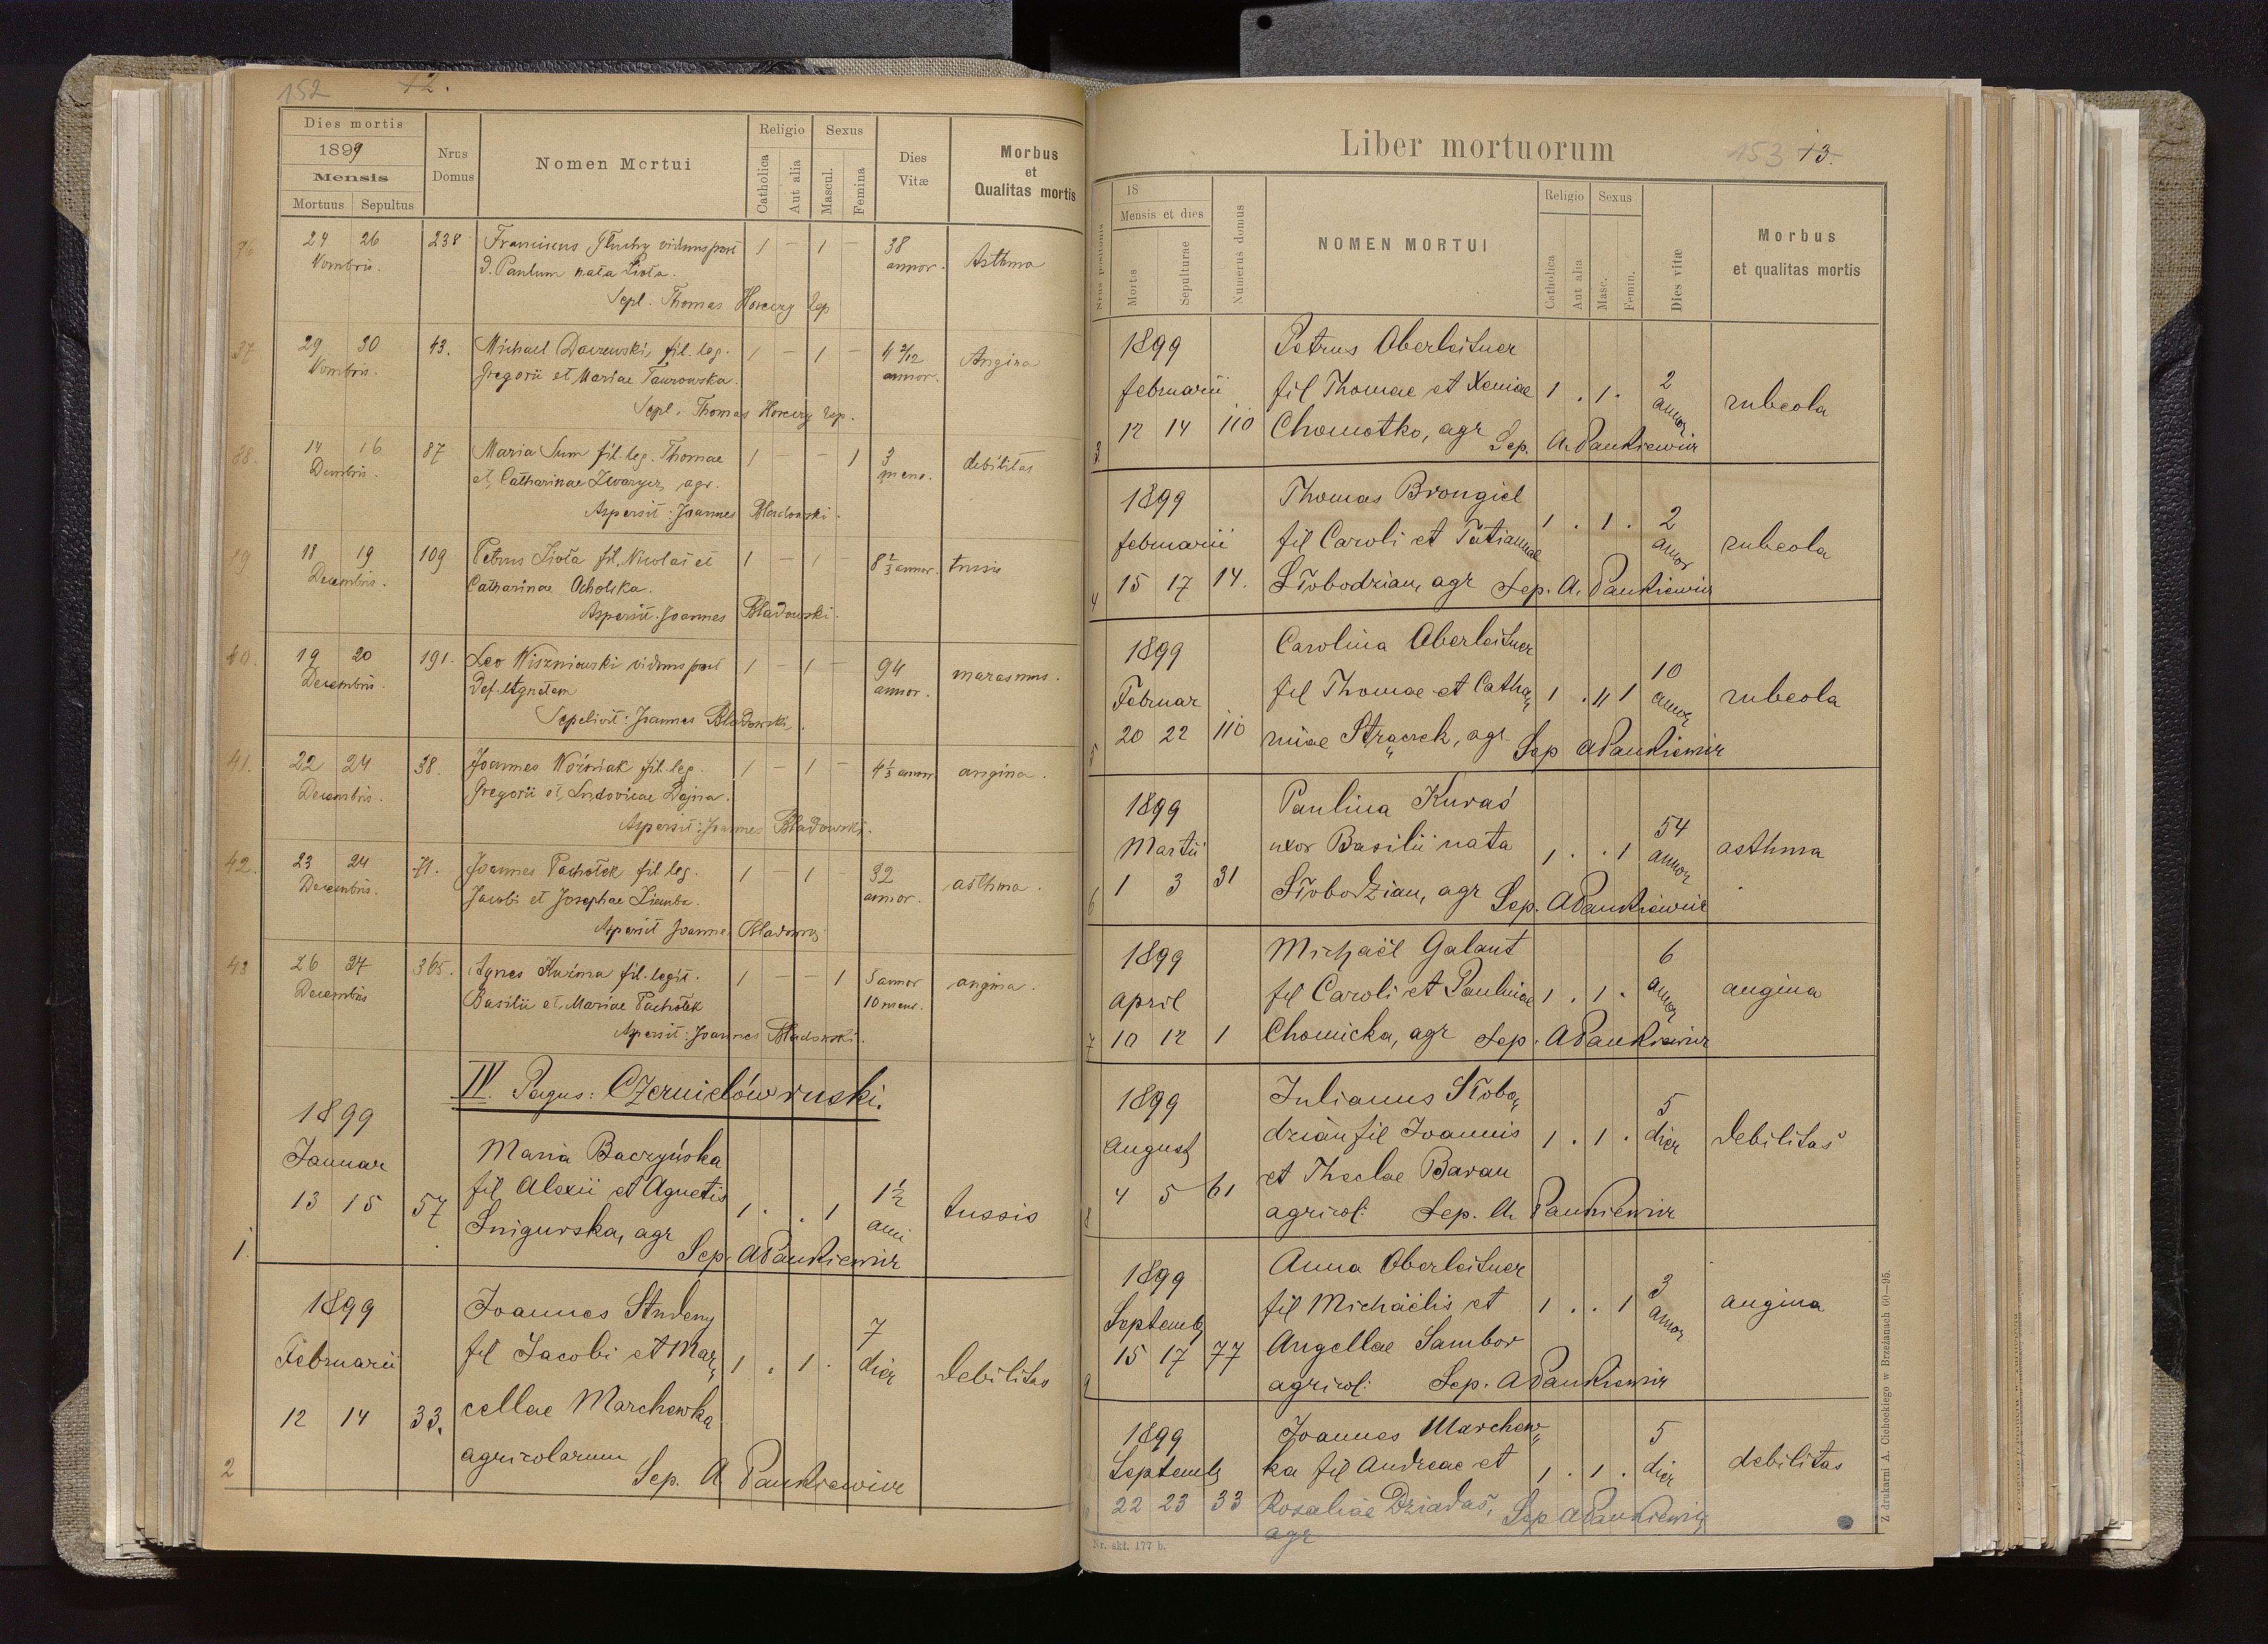 152 72.
Dies mortis
1899
Mensis
Mortuus Sepultus
Nrus Domus
Nomen Mortui
Religio
Catholica
Aut alia
Sexus
Mascul.
Femina
Dies Vitæ
Morbus et Qualitas mortis
24 26 238 Franciscus Głuchy viduus post 1 – 1 – 38
Novmbris. D. Paulum nata annor. Asthma
Sepl. Thomas Horeczy
37 29 30 43. Michael Daczewski, fil. leg. 1 – 1 – 4 2/12
Novmbris. Gregorii et Mariae Taurowska. annor. Angina
Sepl. Thomas Horeczy
38. 14 16 87 Maria Sum fil. leg. Thomae 1 – – 1 3
Dcmbris. et Catharinae Zwarycz, agr. mens. debilitas
Aspersit: Joannes Bladowski.
18 19 109 Petrus fil. Nicolai et 1 – 1 – 8 1/3 annor. tussis
Decembris. Catharinae Ocholska.
Aspersit: Joannes Bladowski.
40. 19 20 191. Leo Wiszniowski viduus post 1 – 1 – 94
Decembris. Def. Agnetem annor. marasmus.
Sepelivit: Joannes Bladowski.
41. 22 24 38. Joannes Woźniak fil. leg. 1 – 1 – 4 1/3 annor angina.
Decembris. Gregorii et Ludovicae Dajna.
Aspersit: Joannes Bladowski.
42. 23 24 71. Joannes Pachołek fil leg. 1 – 1 – 32
Decembris. Jacobi et Josephae Ziemba. annor. asthma.
Aspersit Joannes
43 26 27 365. Agnes Kuźma fil. legit. 1 – – 1 5 annor angina.
Decembris Basilii et Mariae Pachołek 10 mens.
Aspersit: Joannes Bladowski.
IV. Pagus: Czernielów ruski.
1899
Januar Maria Baczyńska
fil Alexii et Agnetis 1 . . 1 1 1/2
13 15 57 Snigurska, agr tussis
1. Sep. A Pankiewicz
1899 Joannes Studeny
Februarii fil Jacobi et Mar„ 1 . 1 . 7 dier debilitas
12 14 33. cellae Marchewka
agricolarum
2 Sep. A Pankiewicz
Liber mortuorum
153 73.
Nrus positionis
18
Mensis et dies
Mortis
Sepulturae
Numerus domus
NOMEN MORTUI
Religio
Catholica
Aut alia
Sexus
Masc.
Femin.
Dies vitæ
Morbus et qualitas mortis
1899 Petrus Oberleitner
februarii fil Thomae et Xeniae 1 . 1 . 2 annor rubeola
3 12 14 110 Chomotko, agr Sep. A. Pankiewicz
1899 Thomas Brongiel
februarii fil Caroli et Tatiannae 1 . 1 . 2 annor rubeola
4 15 17 14. Słobodzian, agr Sep. A. Pankiewicz
1899 Carolina Oberleitner
Februar fil Thomae et Catha„ 1 . 11 1 10 annor rubeola
5 20 22 110 rniae Strączek, agr Sep A Pankiewicz
1899 Paulina Kuraś
Martii uxor Basilii nata 1 . . 1 54 annor asthma
6 1 3 31 Słobodzian, agr Sep. A Pankiewicz
1899 Michaël Galant
April fil Caroli et Paulinae 1 . 1 . 6 annor angina
7 10 12 1 Chomicka, agr Sep. A Pankiewicz
1899 Julianus Słobo„
August dzian fil Joannis 1 . 1 . 5 dier debilitas
4 5 61 et Theclae Baran
8 agricol: Sep. A. Pankiewicz
1899 Anna Oberleitner
Septemb fil Michaëlis et 1 . . 1 3 annor angina
15 17 77 Angellae Sambor
9 agricol: Sep. A Pankiewicz
1899 Joannes Marchew„
Septemb ka fil Andreae et 1 . 1 . 5 dier debilitas
22 23 33 Rosaliae Dziadaś, Sep A Pankiewicz
agr
Nr. akt. 177 b.
Z drukarni A. Ciehockiego w Brzeżanach 60—95.